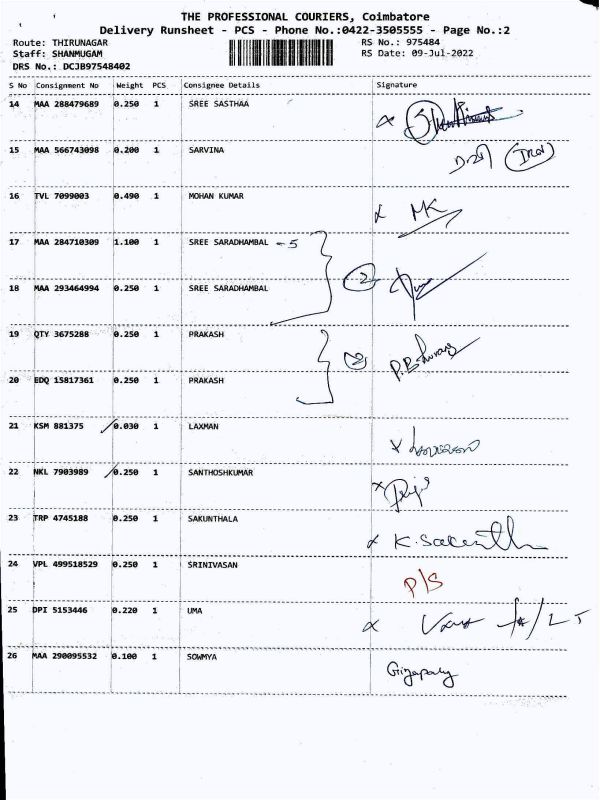 THE PROFESSIONAL COURIERS, Coimbatore
Delivery Runsheet - PCS - Phone No.:0422-3505555 - Page No.:2
Route: THIRUNAGAR RS No.: 975484
Staff: SHANMUGAM RS Date: 09-Jul-2022
DRS No.: DCJB97548402
S No Consignment No Weight PCS Consignee Details Signature
14 MAA 288479689 0.250 1 SREE SASTHAA
15 MAA 566743098 0.200 1 SARVINA
16 TVL 7099003 0.490 1 MOHAN KUMAR MK
17 MAA 284710309 1.100 1 SREE SARADHAMBAL - 5
18 MAA 293464994 0.250 1 SREE SARADHAMBAL 2
19 QTY 3675288 0.250 1 PRAKASH
20 EDQ 15817361 0.250 1 PRAKASH 2
21 KSM 881375 0.030 1 LAXMAN
22 NKL 7903989 0.250 1 SANTHOSHKUMAR
23 TRP 4745188 0.250 1 SAKUNTHALA
24 VPL 499518529 0.250 1 SRINIVASAN P/S
25 DPI 5153446 0.220 1 UMA
26 MAA 290095532 0.100 1 SOWMYA